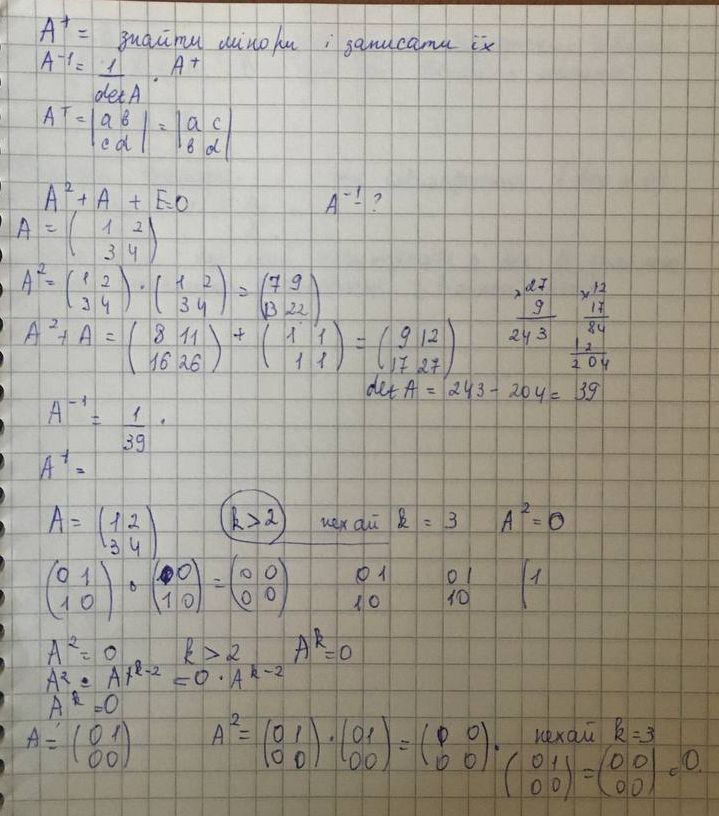 A⁺ = знайти мінори і записати їх
A⁻¹ = 1/detA · A⁺
Aᵀ = |a b; c d| = |a c; b d|
A² + A + E = 0 A⁻¹ - ?
A = (1 2; 3 4)
A² = (1 2; 3 4) · (1 2; 3 4) = (7 9; 13 22)
× 27 9 243 × 12 17 84 12 204
A² + A = (8 11; 16 26) + (1 1; 1 1) = (9 12; 17 27)
det A = 243 - 204 = 39
A⁻¹ = 1/39 ·
A⁺ =
A = (1 2; 3 4) k > 2 нехай k = 3 A² = 0
(0 1; 1 0) · (0 0; 1 0) = (0 0; 0 0) 0 1; 1 0 0 1; 1 0 (1
A² = 0 k > 2 Aᵏ = 0
A² · Aᵏ⁻² = 0 · Aᵏ⁻²
Aᵏ = 0
A = (0 1; 0 0) A² = (0 1; 0 0) · (0 1; 0 0) = (0 0; 0 0) · нехай k = 3
(0 1; 0 0) = (0 0; 0 0) = 0.